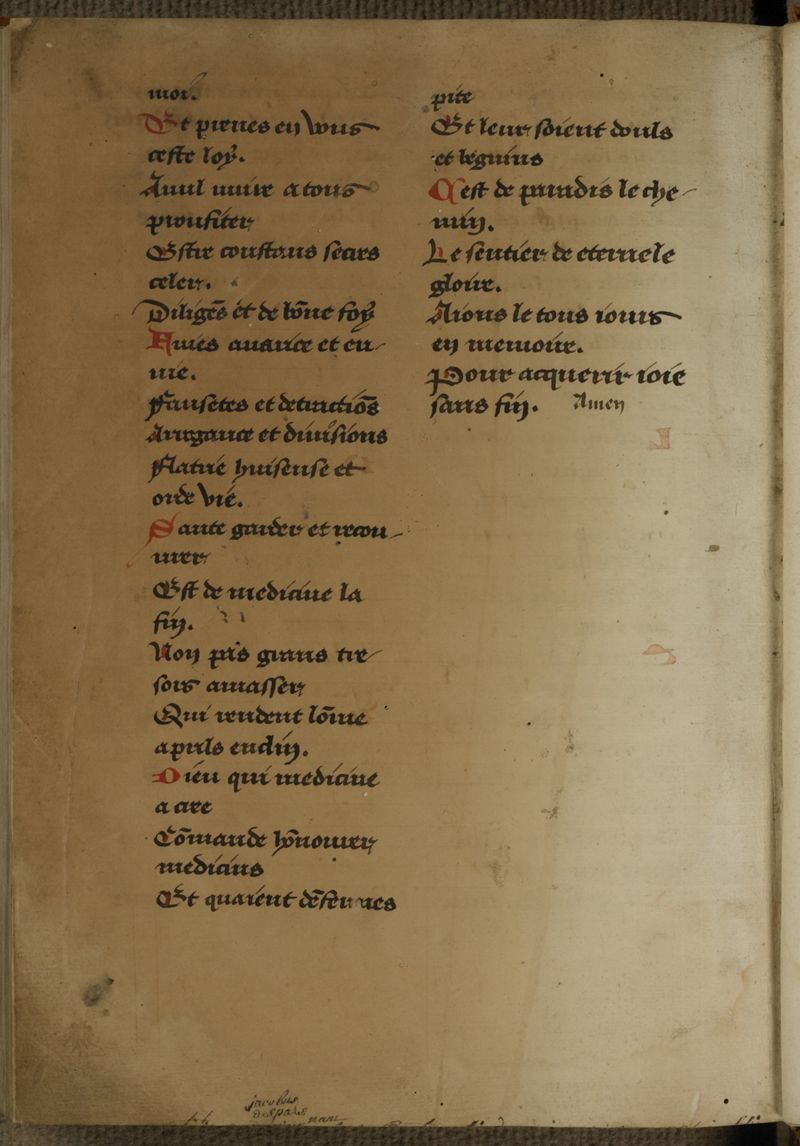 moi.
Et prenes en vous
ceste loy.
A nul nuire a tous
proufiter
Estre constans secres
celer.
Diligẽs et de bõne foy
Fuies auarice et en-
uie.
Faulsetes et detractiõs
Arrogance et diuisions
Flatrie huiseuse et
orde vie.
Sante garder et recou-
urer
Est de medicine la
fin.
Non pas grans tre-
sors amasser
Qui rendent lõme
a perils enclin.
Dieu qui medicine
a cree
Cõmande hõnourer
medicins
Et quaient
pite
Et leur soient douls
et begnins
Cest de paradis le che-
min.
Le sentier de eternele
gloire.
Aions le tous iours
en memoire.
Pour acquerir ioie
sans fin. Amen
jacobus
despars